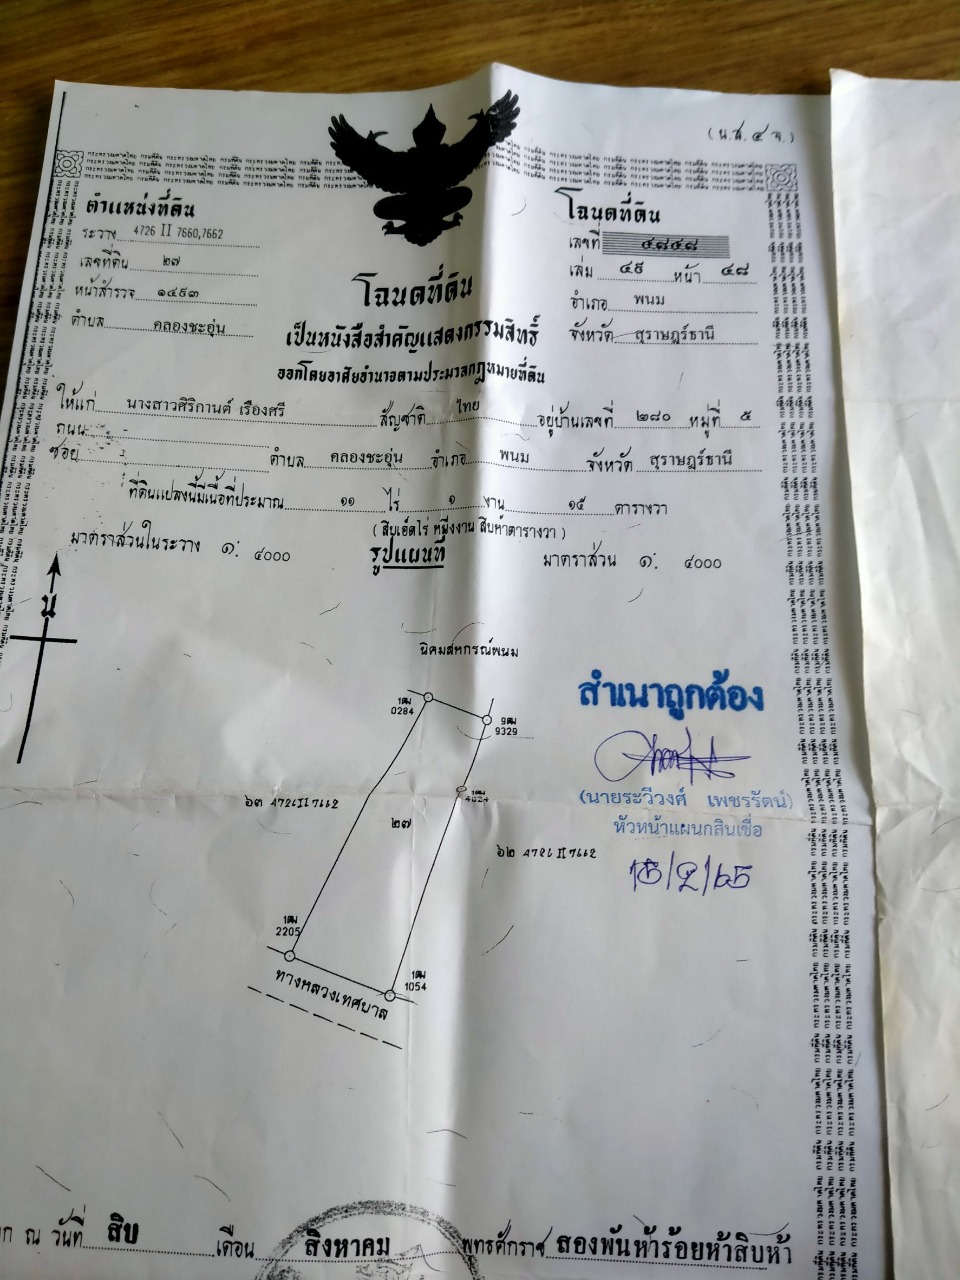 (น.ส.๔ จ.)
ตำแหน่งที่ดิน
ระวาง 4726 II 7660,7662
เลขที่ดิน ๒๗
หน้าสำรวจ ๑๔๙๓
ตำบล คลองชะอุ่น
โฉนดที่ดิน
เลขที่ ๔๘๔๘
เล่ม ๔๙ หน้า ๔๘
อำเภอ พนม
จังหวัด สุราษฎร์ธานี
โฉนดที่ดิน
เป็นหนังสือสำคัญแสดงกรรมสิทธิ์
ออกโดยอาศัยอำนาจตามประมวลกฎหมายที่ดิน
ให้แก่ นางสาวศิริกานต์ เรืองศรี สัญชาติ ไทย อยู่บ้านเลขที่ ๒๘๐ หมู่ที่ ๕
ถนน
ซอย ตำบล คลองชะอุ่น อำเภอ พนม จังหวัด สุราษฎร์ธานี
ที่ดินแปลงนี้มีเนื้อที่ประมาณ ๑๑ ไร่ ๑ งาน ๑๕ ตารางวา
(สิบเอ็ดไร่ หนึ่งงาน สิบห้าตารางวา)
มาตราส่วนในระวาง ๑: ๔๐๐๐ รูปแผนที่ มาตราส่วน ๑: ๔๐๐๐
น
นิคมสหกรณ์พนม
สำเนาถูกต้อง
0284
9329
(นายระวีวงศ์ เพชรรัตน์)
หัวหน้าแผนกสินเชื่อ
15/2/65
4624
๖๓ 4726 II 7662
๒๗
๖๒ 4726 II 7662
2205
1054
ทางหลวงเทศบาล
ณ วันที่ สิบ เดือน สิงหาคม พุทธศักราช สองพันห้าร้อยห้าสิบห้า